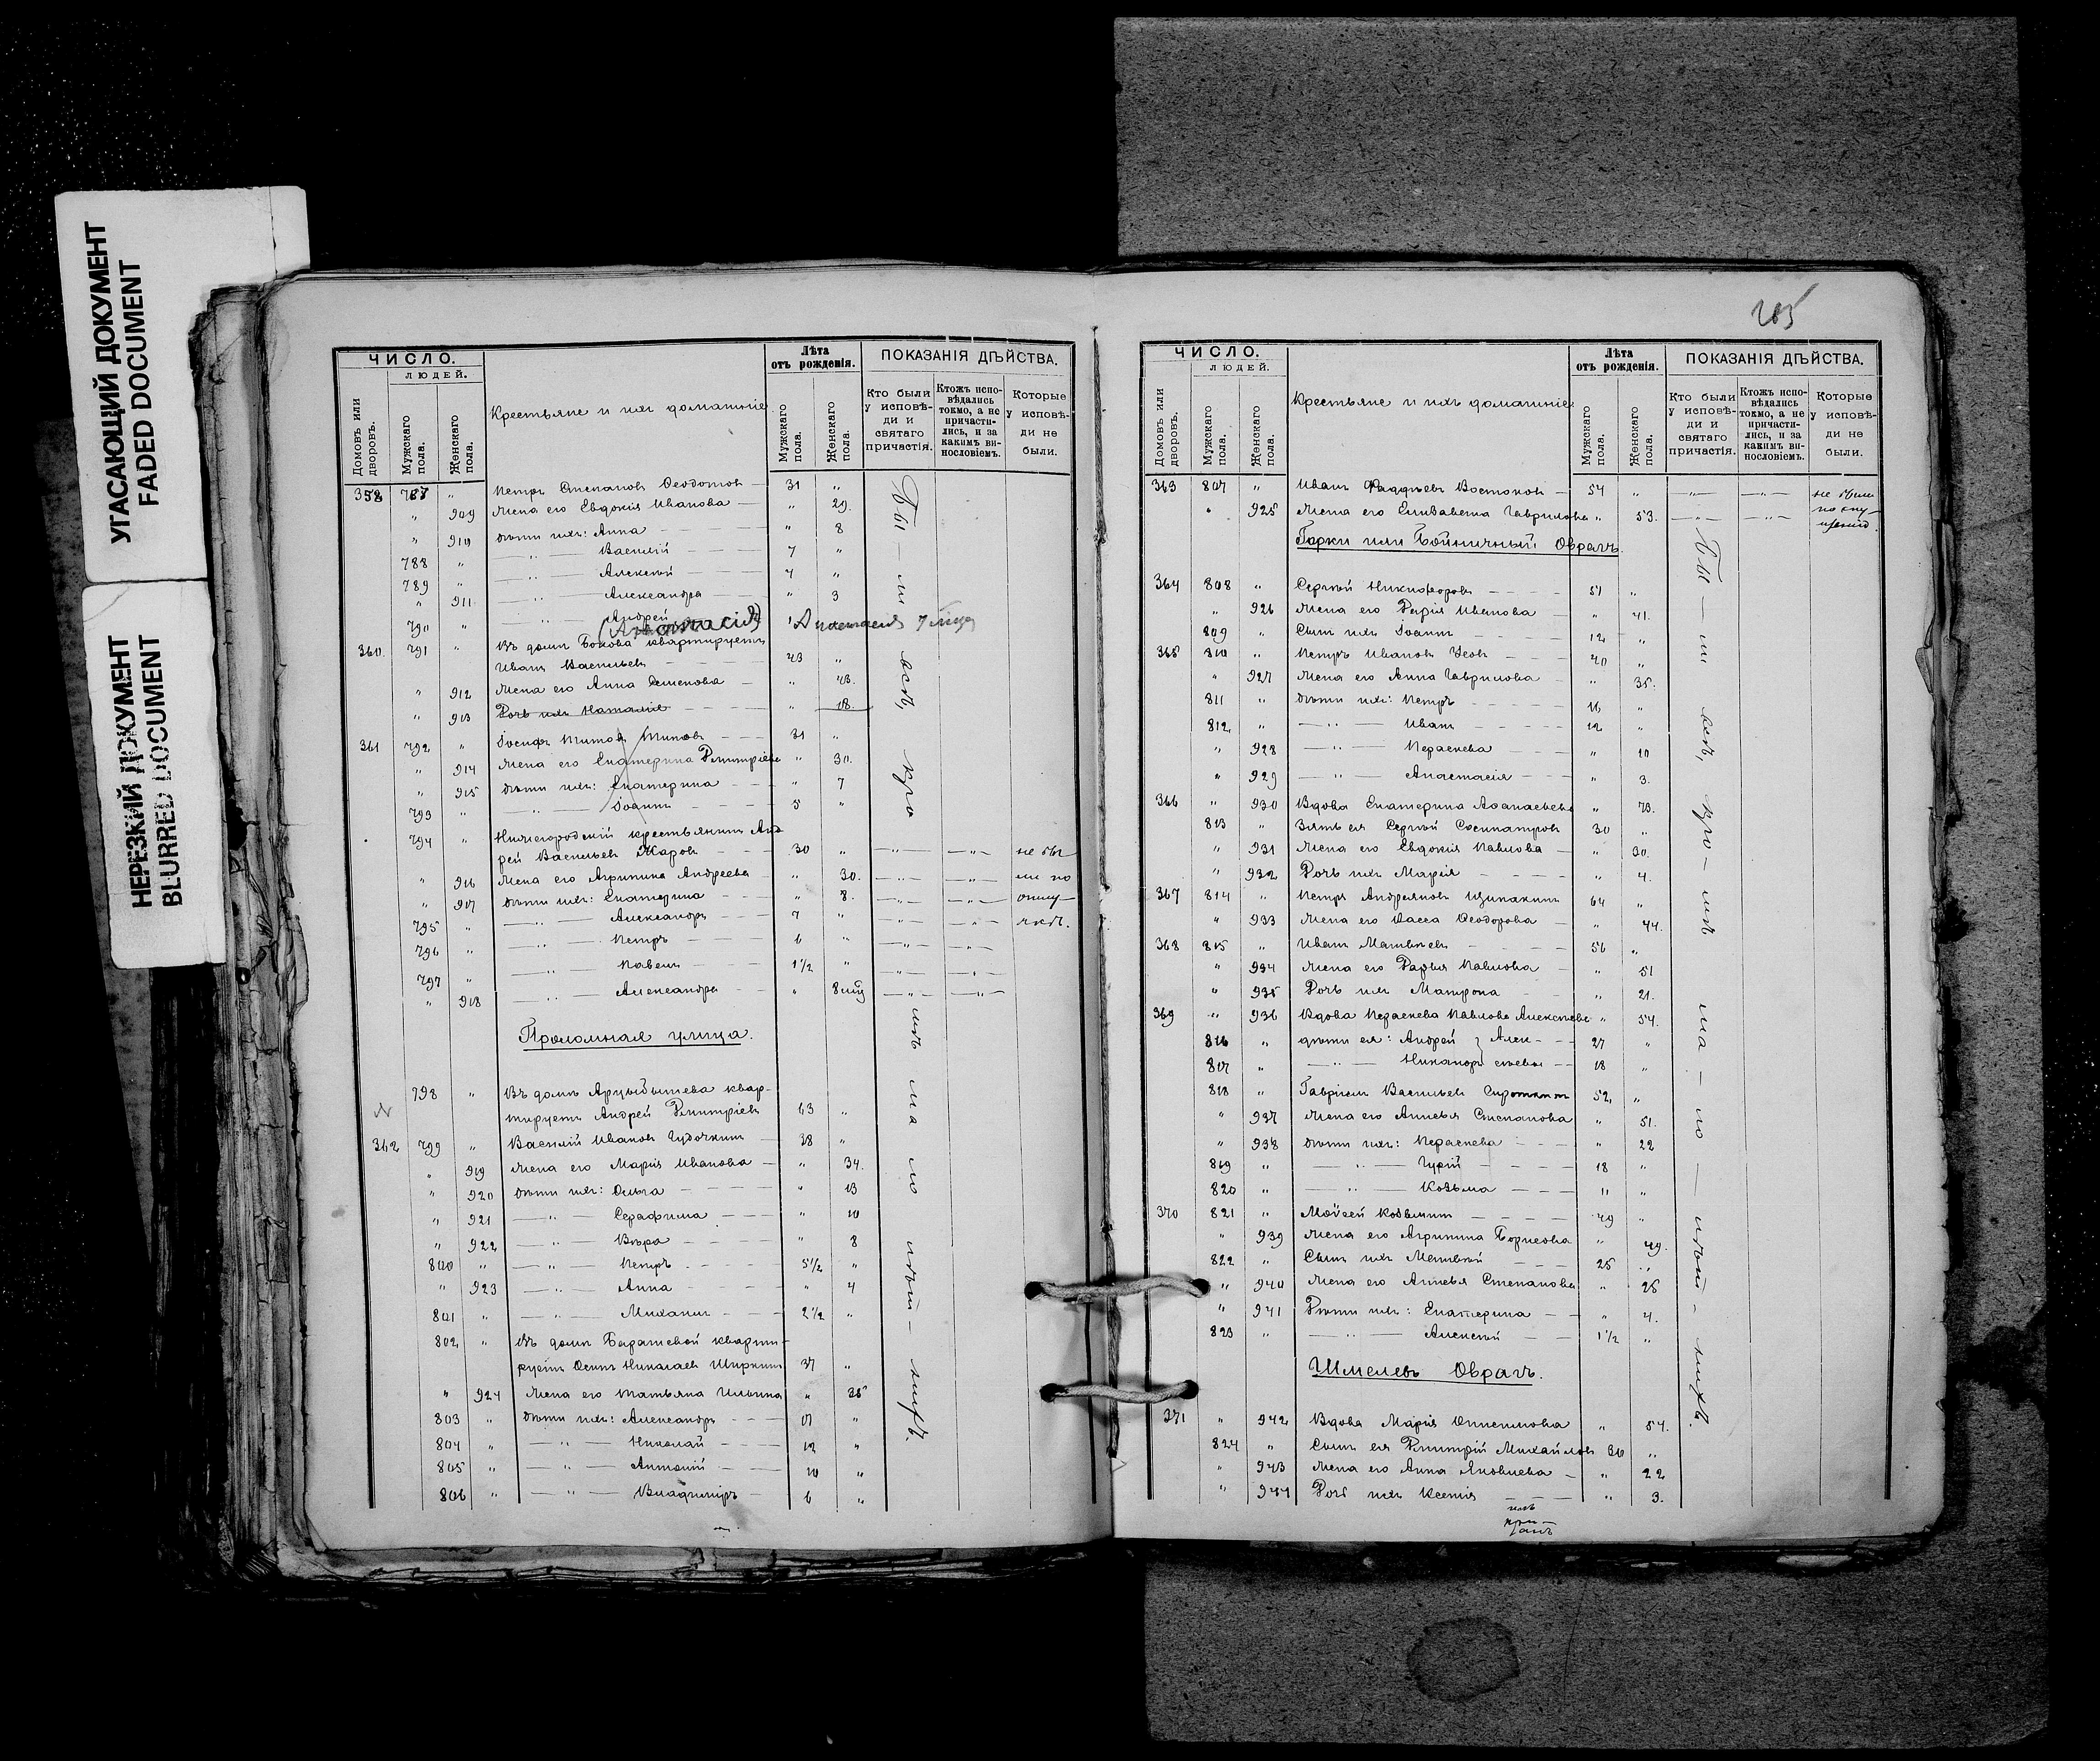 УГАСАЮЩИЙ ДОКУМЕНТ
FADED DOCUMENT
НЕРЕЗКИЙ ДОКУМЕНТ
BLURRED DOCUMENT
ЧИСЛО.
ЛЮДЕЙ.
Домовъ или дворовъ.
Мужскаго пола.
Женскаго пола.
Крестьяне и ихъ домашніе
Лѣта отъ рожденія.
Мужскаго пола.
Женскаго пола.
ПОКАЗАНІЯ ДѢЙСТВА.
Кто были у исповѣди и святаго причастія.
Ктожъ исповѣдались токмо, а не причастились, и за какимъ винословіемъ.
Которые у исповѣди не были.
358 787 " Петръ Степановъ Ѳеодотовъ 31 "
" 909 Жена его Евдокія Иванова " 29.
" 910 Дѣти ихъ: Анна " 8
788 " — " — Василій 7 "
789 " — " — Алексѣй 4 "
" 911 — " — Александра " 3
790 " — " — Андрей 1
(Анастасія) Анастасія
360. 791 " Въ домѣ Бокова квартируетъ
Иванъ Васильевъ 43 "
" 912 Жена его Анна Семенова " 43.
" 913 Дочь ихъ Наталія " 18.
361 792 " Іосифъ Титовъ Титовъ 31 "
" 914 Жена его Екатерина Димитріева " 30.
" 915 Дѣти ихъ: Екатерина " 7
793 " — " — Іоаннъ 5 "
794 " Нижегородскій крестьянинъ Анд
рей Васильевъ Жаровъ 30 " — " — — " — не бы
" 916 Жена его Агрипина Андреева " 30. — " — — " — ли по
" 917 Дѣти ихъ: Екатерина " 8. — " — — " — отлу
795 " — " — Александръ 7 " — " — — " — чкѣ.
796 " — " — Петръ 6 " — " — — " —
797 " — " — Павелъ 1½ " — " — — " —
" 918 — " — Александра " 8 мѣц — " — — " —
Проломная улица.
798 " Въ домѣ Арцыбышева квар-
тируетъ Андрей Димитріевъ 63 "
362 799 " Василій Ивановъ Гудочкинъ 38 "
" 919 Жена его Марія Иванова " 34.
" 920 Дѣти ихъ: Ольга " 13
" 921 — " — Серафима " 10
" 922 — " — Вѣра " 8
800 " — " — Петръ 5½ "
" 923 — " — Анна " 4
801 " — " — Михаилъ 2½ "
802 " Въ домѣ Барашевой кварти-
руетъ Осипъ Николаевъ Ширкинъ 37 "
" 924 Жена его Татьяна Ильина " 35
803 " Дѣти ихъ: Александръ 17 "
804 " — " — Николай 12 "
805 " — " — Антоній 10 "
806 " — " — Владиміръ 6 "
Бы — ли всѣ, кро — мѣ ма — ло — лѣт — нихъ.
205
ЧИСЛО.
ЛЮДЕЙ.
Домовъ или дворовъ.
Мужскаго пола.
Женскаго пола.
Крестьяне и ихъ домашніе
Лѣта отъ рожденія.
Мужскаго пола.
Женскаго пола.
ПОКАЗАНІЯ ДѢЙСТВА.
Кто были у исповѣди и святаго причастія.
Ктожъ исповѣдались токмо, а не причастились, и за какимъ винословіемъ.
Которые у исповѣди не были.
363 807 " Иванъ Фаддѣевъ Востоковъ 54 " — " — — " — не были
" 925 Жена его Елизавета Гаврилова " 53. — " — — " — по опу-
щенію.
Гарки или Бойничный Оврагъ.
364 808 " Сергѣй Никифоровъ 51 "
" 926 Жена его Дарія Иванова " 41.
809 " Сынъ ихъ Іоаннъ 12 "
365 810 " Петръ Ивановъ Усовъ 40 "
" 927 Жена его Анна Гаврилова " 35.
811 " Дѣти ихъ: Петръ 16 "
812 " — " — Иванъ 12 "
" 928 — " — Параскева " 10
" 929 — " — Анастасія " 3.
366 " 930 Вдова Екатерина Аѳанасьева " 73.
813 " Зять ея Сергѣй Сосипатровъ 30 "
" 931 Жена его Евдокія Павлова " 30.
" 932 Дочь ихъ Марія " 4.
367 814 " Петръ Андреяновъ 64 "
" 933 Жена его Васса Ѳеодорова " 44.
368 815 " Иванъ Матвѣевъ 56 "
" 934 Жена его Дарья Павлова " 51
" 935 Дочь ихъ Матрона " 21.
369 " 936 Вдова Параскева Павлова Алексѣева " 54.
816 " Дѣти ея: Андрей } Алек- 27 "
817 " — " — Никаноръ } сѣевы 18 "
818 " Гавріилъ Васильевъ Сироткинъ 52 "
" 937 Жена его Анисья Степанова " 51.
" 938 Дѣти ихъ: Параскева " 22
819 " — " — Гурій 18 "
820 " — " — Козьма 11 "
370 821 " Моѵсей Козьминъ 49 "
" 939 Жена его Агрипина Борисова " 49.
822 " Сынъ ихъ 25 "
" 940 Жена его Анисья Степанова " 25
" 941 Дѣти ихъ: Екатерина " 4.
823 " — " — Алексѣй 1½ "
Шмелевъ Оврагъ.
371 " 942 Вдова Марія Онисимова " 54.
824 " Сынъ ея Димитрій Михайловъ 30 "
" 943 Жена его Анна Яковлева " 22
" 944 Дочь ихъ Ксенія " 3.
Бы — ли всѣ, кро — мѣ ма — ло — лѣт — нихъ.